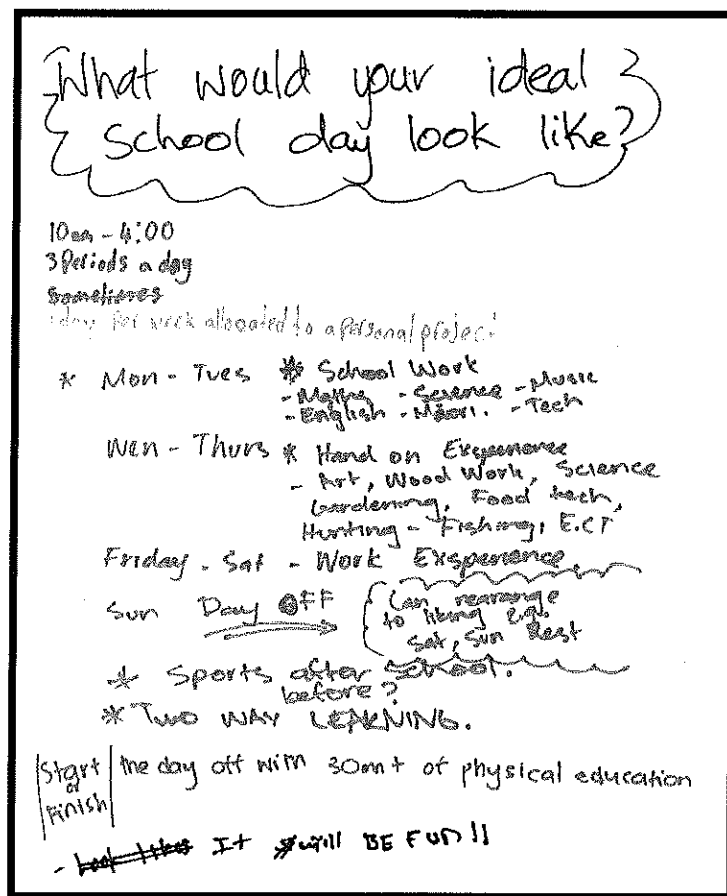 What would your ideal
school day look like?
10am - 4:00
3 Periods a day
sometimes
1 day per week allocated to a personal project
* Mon - Tues * School Work
- Maths - Science - Music
- English - Māori. - Tech
Wen - Thurs * Hand on Exsperience
- Art, Wood Work, Science
Gardening, Food tech,
Hunting - Fishing, E.CT
Friday - Sat - Work Exsperience
Sun Day OFF
Can rearrange
to liking e.g.
Sat, Sun Rest
* Sports after school.
before?
* TWO WAY LEARNING.
Start
or
Finish
the day off with 30mn+ of physical education
- It will BE FUN!!